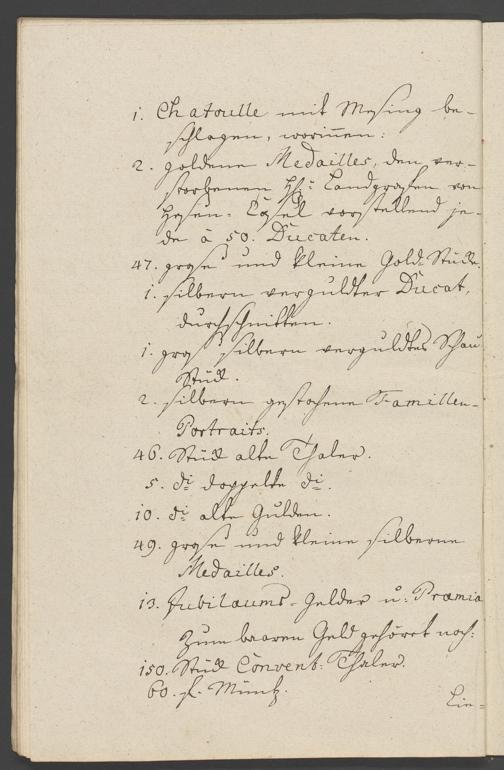 1. Chatoulle mit Meßing be-
schlagen, worinnen:
2. goldene Medailles, den ver-
storbenen H: Landgrafen von
Heßen-Caßel vorstellend je-
de à 50. Ducaten.
47. große und kleine Gold-Stück.
1. silbern verguldter Ducat,
durchschnitten.
1. groß silbern verguldtes Schau
Stück.
2. silbern gestochene Famillen-
Portraits.
46. Stück alte Thaler.
5. do doppelte do.
10. do alte Gulden.
49. große und kleine silberne
Medailles.
13. Jubilaums-Gelder u: Præmia
Zum baaren Geld gehöret noch:
150. Stück Convent: Thaler.
60. fl. Müntz.
Lie-